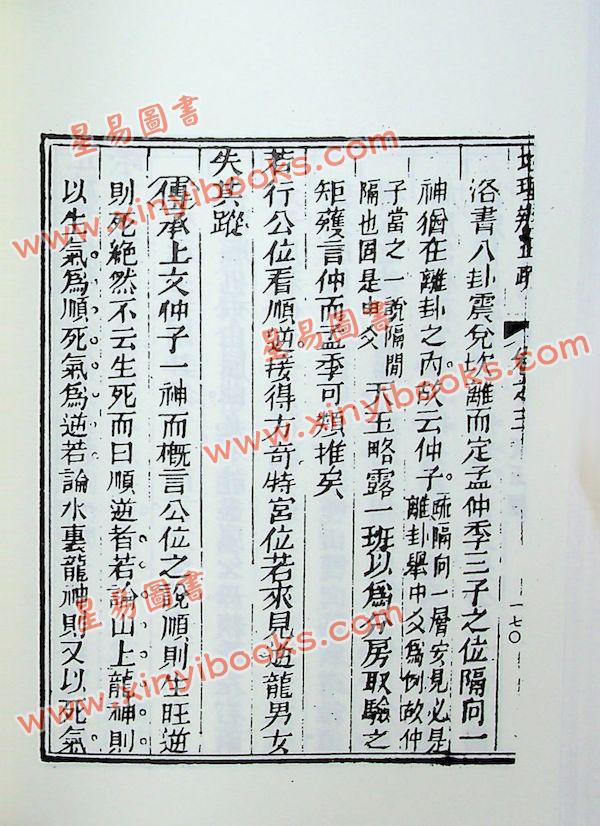 洛書八卦震兌坎離而定孟仲季三子之位隔向一
神猶在離卦之內故云仲子疏隔向一層安見必是
離卦舉中爻為例故仲
子當之一說隔間
隔也因是中爻
天玉略露一班以為分房取驗之
矩矱言仲而孟季可類推矣
若行公位看順逆接得方奇特宮位若來見逆龍男女
失其蹤
傳承上文仲子一神而概言公位之說順則生旺逆
則死絕然不云生死而曰順逆者若論山上龍神則
以生氣為順死氣為逆若論水裏龍神則又以死氣
一七〇
星易圖書
www.xinyibooks.com
星易圖書
www.xinyibooks.com
星易圖書
www.xinyibooks.com